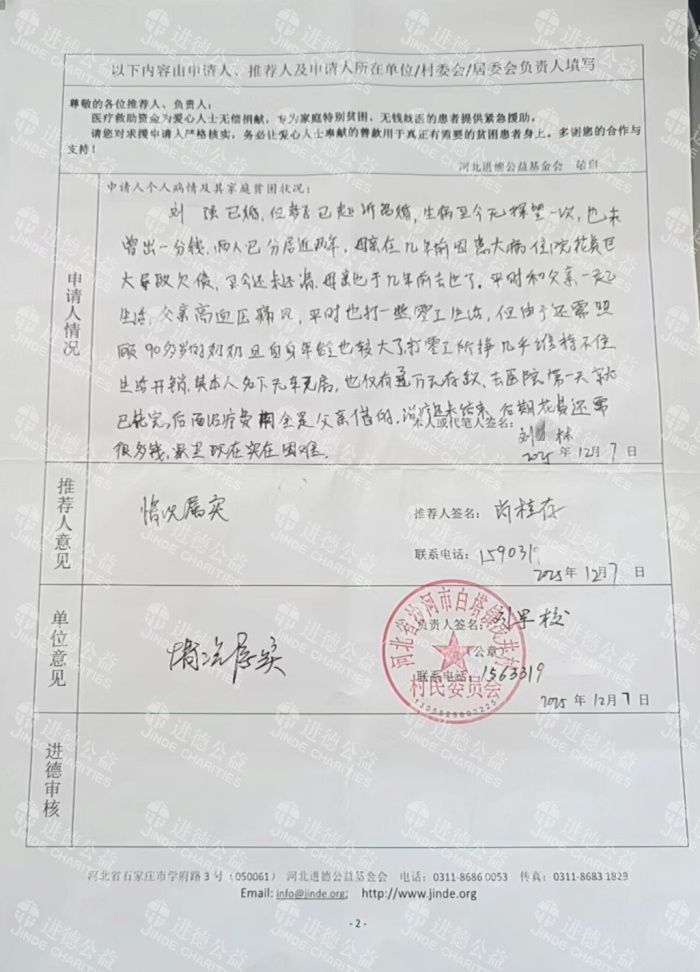 以下内容由申请人、推荐人及申请人所在单位/村委会/居委会负责人填写
尊敬的各位推荐人、负责人：
医疗救助资金为爱心人士无偿捐献，专为家庭特别贫困、无钱就医的患者提供紧急援助。
请您对求援申请人严格核实，务必让爱心人士奉献的善款用于真正有需要的贫困患者身上。多谢您的合作与
支持！
河北进德公益基金会 敬启
申请人情况
申请人个人病情及其家庭贫困状况：
刘 强已婚，但妻子已起诉离婚，生病至今无探望一次，也未
曾出一分钱，两人已分居近两年，母亲在几年前因患大病住院花费巨
大导致欠债，至今还未还清，母亲也于几年前去世了。平时和父亲一起
生活，父亲高血压痛风，平时也打一些零工生活，但由于还需照
顾90多岁的奶奶且自身年龄也较大了打零工所挣几乎维持不住
生活开销，其本人名下无车无房，也仅有万元存款，去医院第一天就
已花完，后面治疗费用全是父亲借的，治疗还未结束，后期花费还需
很多钱，家里现在实在困难。
本人或代笔人签名：
刘 林
2025 年 12月 7 日
推荐人意见
情况属实
推荐人签名：
联系电话：159031
2025 年 12月 7 日
单位意见
情况属实
负责人签名：刘军校
（公章）
联系电话：1563319
2025 年 12月 7 日
河北省沙河市白塔镇
村民委员会
进德审核
河北省石家庄市学府路 3 号（050061） 河北进德公益基金会 电话：0311-8686 0053 传真：0311-8683 1829
Email: info@jinde.org; http://www.jinde.org
- 2 -
进德公益
JINDE CHARITIES